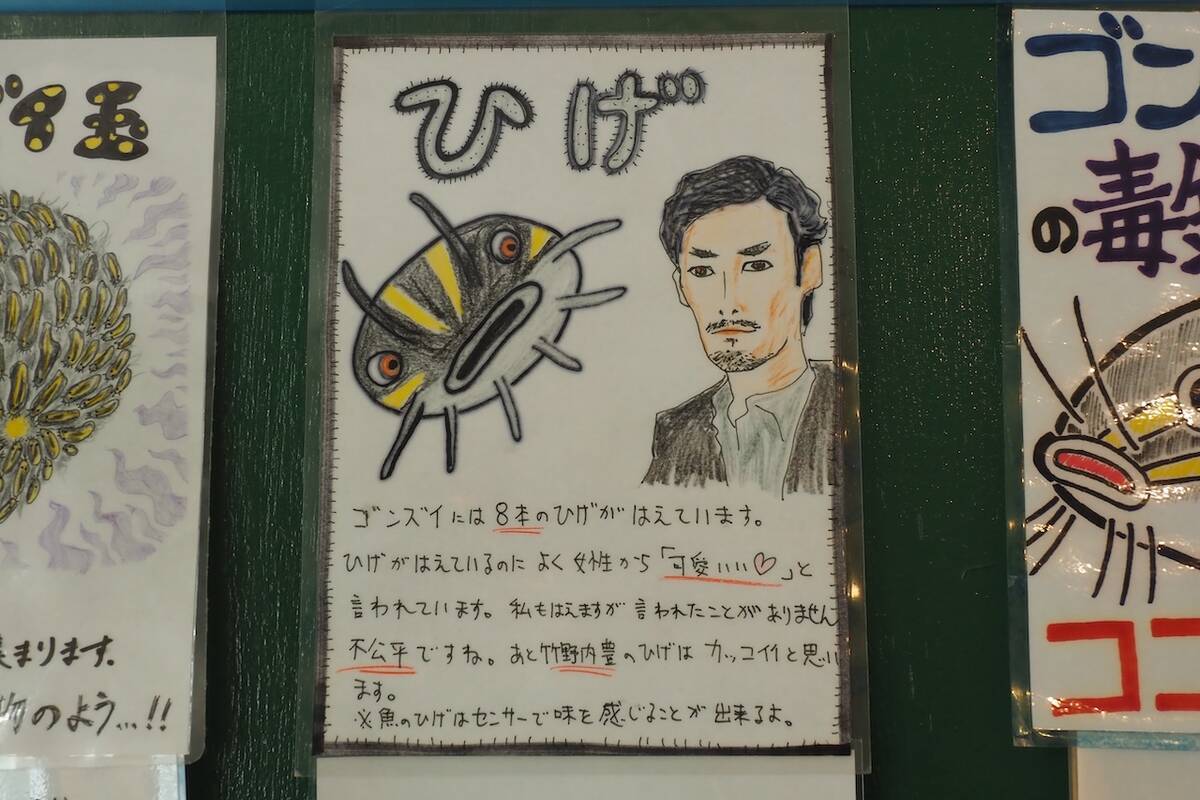 ズイ玉
まります。
物のよう…!!
ひげ
ゴンズイには8本のひげがはえています。
ひげがはえているのによく女性から「可愛いい♡」と
言われています。私もはえますが言われたことがありません
不公平ですね。あと竹野内豊のひげはカッコイイと思い
ます。
※魚のひげはセンサーで味を感じることが出来るよ。
ゴン
の毒
ココ